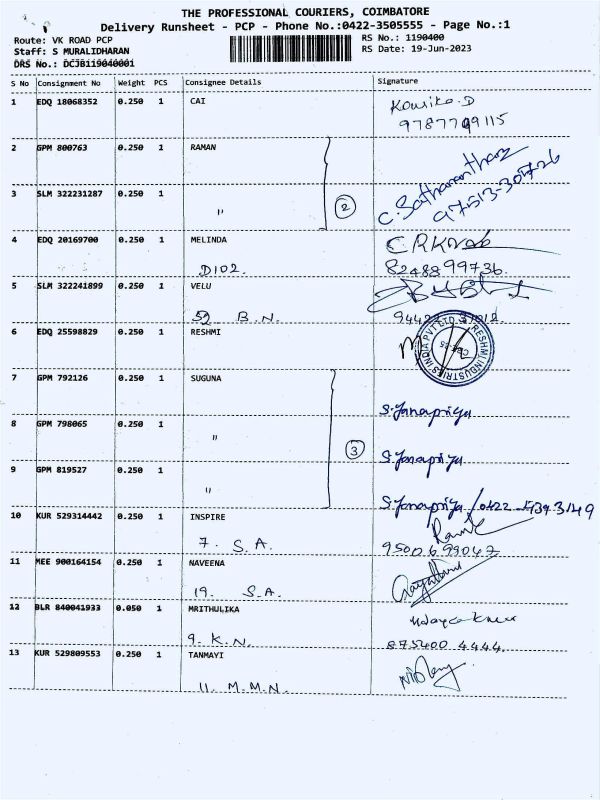 THE PROFESSIONAL COURIERS, COIMBATORE
Delivery Runsheet - PCP - Phone No.:0422-3505555 - Page No.:1
Route: VK ROAD PCP RS No.: 1190400
Staff: S MURALIDHARAN RS Date: 19-Jun-2023
DRS No.: DCJB119040001
S No Consignment No Weight PCS Consignee Details Signature
1 EDQ 18068352 0.250 1 CAI Kousika.D
9787709115
2 GPM 800763 0.250 1 RAMAN
3 SLM 322231287 0.250 1 " 2 C. Sathananthan
97513-30726
4 EDQ 20169700 0.250 1 MELINDA
D102. 8248899736.
5 SLM 322241899 0.250 1 VELU
52 B.N.
6 EDQ 25598829 0.250 1 RESHMI
RESHMI INDUSTRIES INDIA PVT LTD
7 GPM 792126 0.250 1 SUGUNA S.Janapriya
8 GPM 798065 0.250 1 " 3 S.Janapriya
9 GPM 819527 0.250 1 " S.Janapriya /0422
10 KUR 529314442 0.250 1 INSPIRE
7. S.A. 9500699047
11 MEE 900164154 0.250 1 NAVEENA
19. S.A.
12 BLR 840041933 0.050 1 MRITHULIKA
9. K.N. 875400 4444.
13 KUR 529809553 0.250 1 TANMAYI
11. M.M.N.